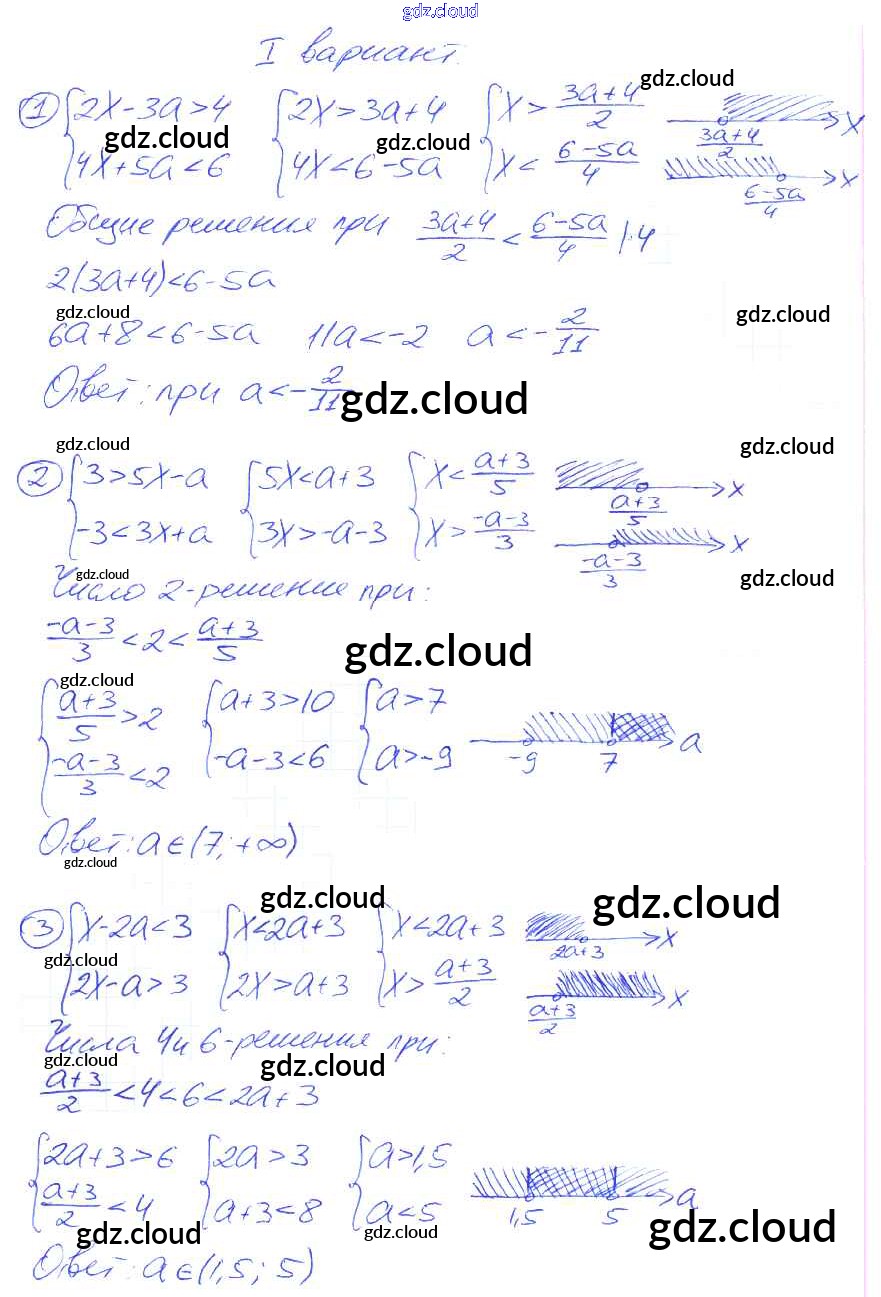 gdz.cloud
I вариант.
① {2x-3a>4 {2x>3a+4 {x>(3a+4)/2 gdz.cloud (3a+4)/2 x
gdz.cloud {4x+5a<6 gdz.cloud {4x<6-5a {x<(6-5a)/4 (6-5a)/4 x
Общие решения при (3a+4)/2 < (6-5a)/4 |·4
2(3a+4)<6-5a
gdz.cloud gdz.cloud
6a+8<6-5a 11a<-2 a<-2/11
Ответ: при a<-2/11 gdz.cloud
gdz.cloud gdz.cloud
② {3>5x-a {5x<a+3 {x<(a+3)/5 (a+3)/5 x
{-3<3x+a {3x>-a-3 {x>(-a-3)/3 (-a-3)/3 x
gdz.cloud gdz.cloud
Число 2-решение при:
(-a-3)/3 <2< (a+3)/5 gdz.cloud
gdz.cloud
{(a+3)/5 >2 {a+3>10 {a>7
{(-a-3)/3 <2 {-a-3<6 {a>-9 -9 7 a
Ответ: a∈(7;+∞)
gdz.cloud
gdz.cloud gdz.cloud
③ {x-2a<3 {x<2a+3 {x<2a+3 2a+3 x
gdz.cloud
{2x-a>3 {2x>a+3 {x>(a+3)/2 (a+3)/2 x
Числа 4 и 6-решения при:
gdz.cloud gdz.cloud
(a+3)/2 <4<6<2a+3
{2a+3>6 {2a>3 {a>1,5
{(a+3)/2 <4 {a+3<8 {a<5 1,5 5 a
gdz.cloud gdz.cloud gdz.cloud
Ответ: a∈(1,5; 5)